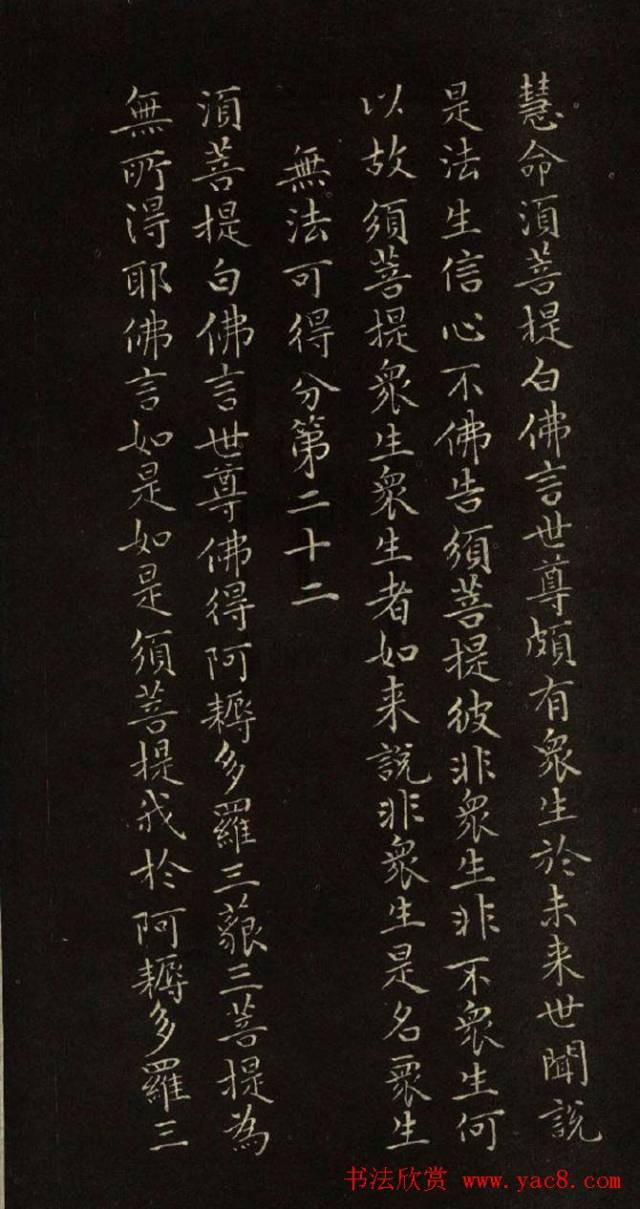 慧命須菩提白佛言世尊頗有衆生於未来世聞說
是法生信心不佛告須菩提彼非衆生非不衆生何
以故須菩提衆生衆生者如来說非衆生是名衆生
無法可得分第二十二
須菩提白佛言世尊佛得阿耨多羅三藐三菩提為
無所得耶佛言如是如是須菩提我於阿耨多羅三
书法欣赏 www.yac8.com